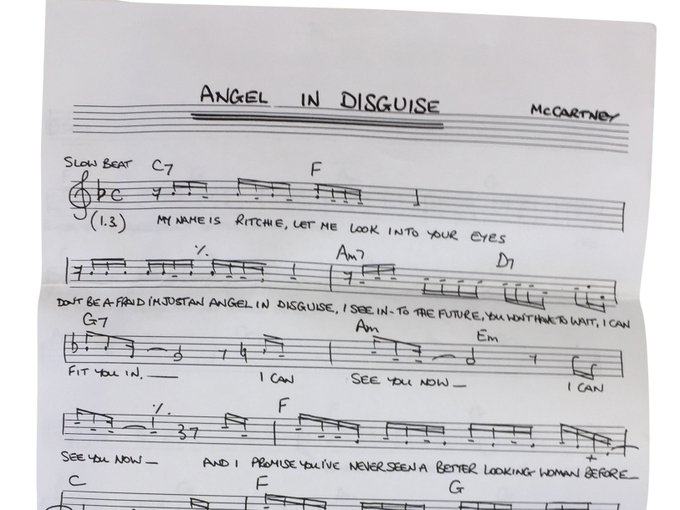 ANGEL IN DISGUISE McCARTNEY
SLOW BEAT C7 F
(1.3) MY NAME IS RITCHIE, LET ME LOOK INTO YOUR EYES
Am7 D7
DONT BE A-FRAID I'M JUST AN ANGEL IN DISGUISE, I SEE IN-TO THE FUTURE, YOU WONT HAVE TO WAIT, I CAN
G7 Am Em
FIT YOU IN. — I CAN SEE YOU NOW — I CAN
F
SEE YOU NOW — AND I PROMISE YOU I'VE NEVER SEEN A BETTER LOOKING WOMAN BEFORE —
C F G